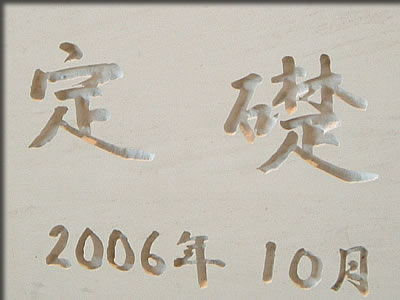 定礎
2006年 10月